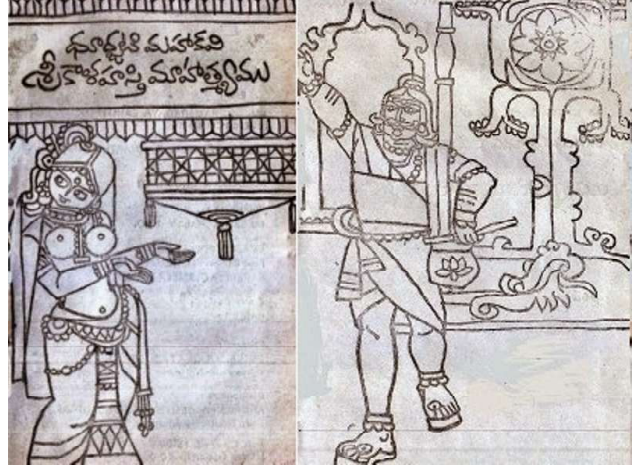 ధూర్జటి మహాకవి
శ్రీకాళహస్తి మాహాత్మ్యము